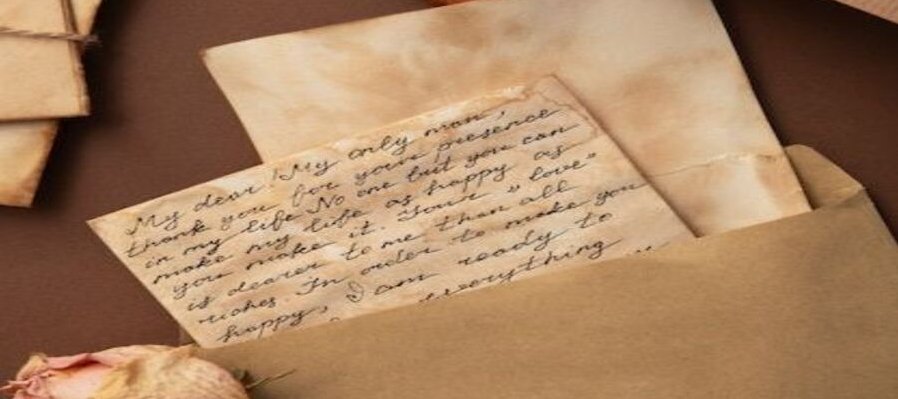 My dear! My only man,
thank you for your presence
in my life No one but you can
make my life as happy as
you make it. Your "love"
is dearer to me than all
riches. In order to make you
happy, I am ready to
everything